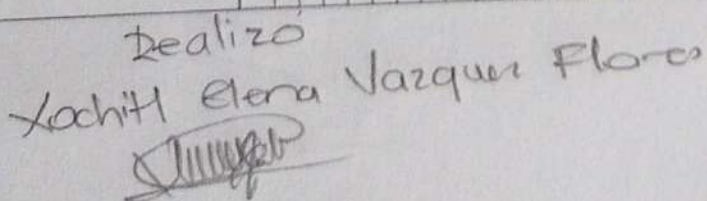 Realizó
Xochitl Elena Vazquez Flores